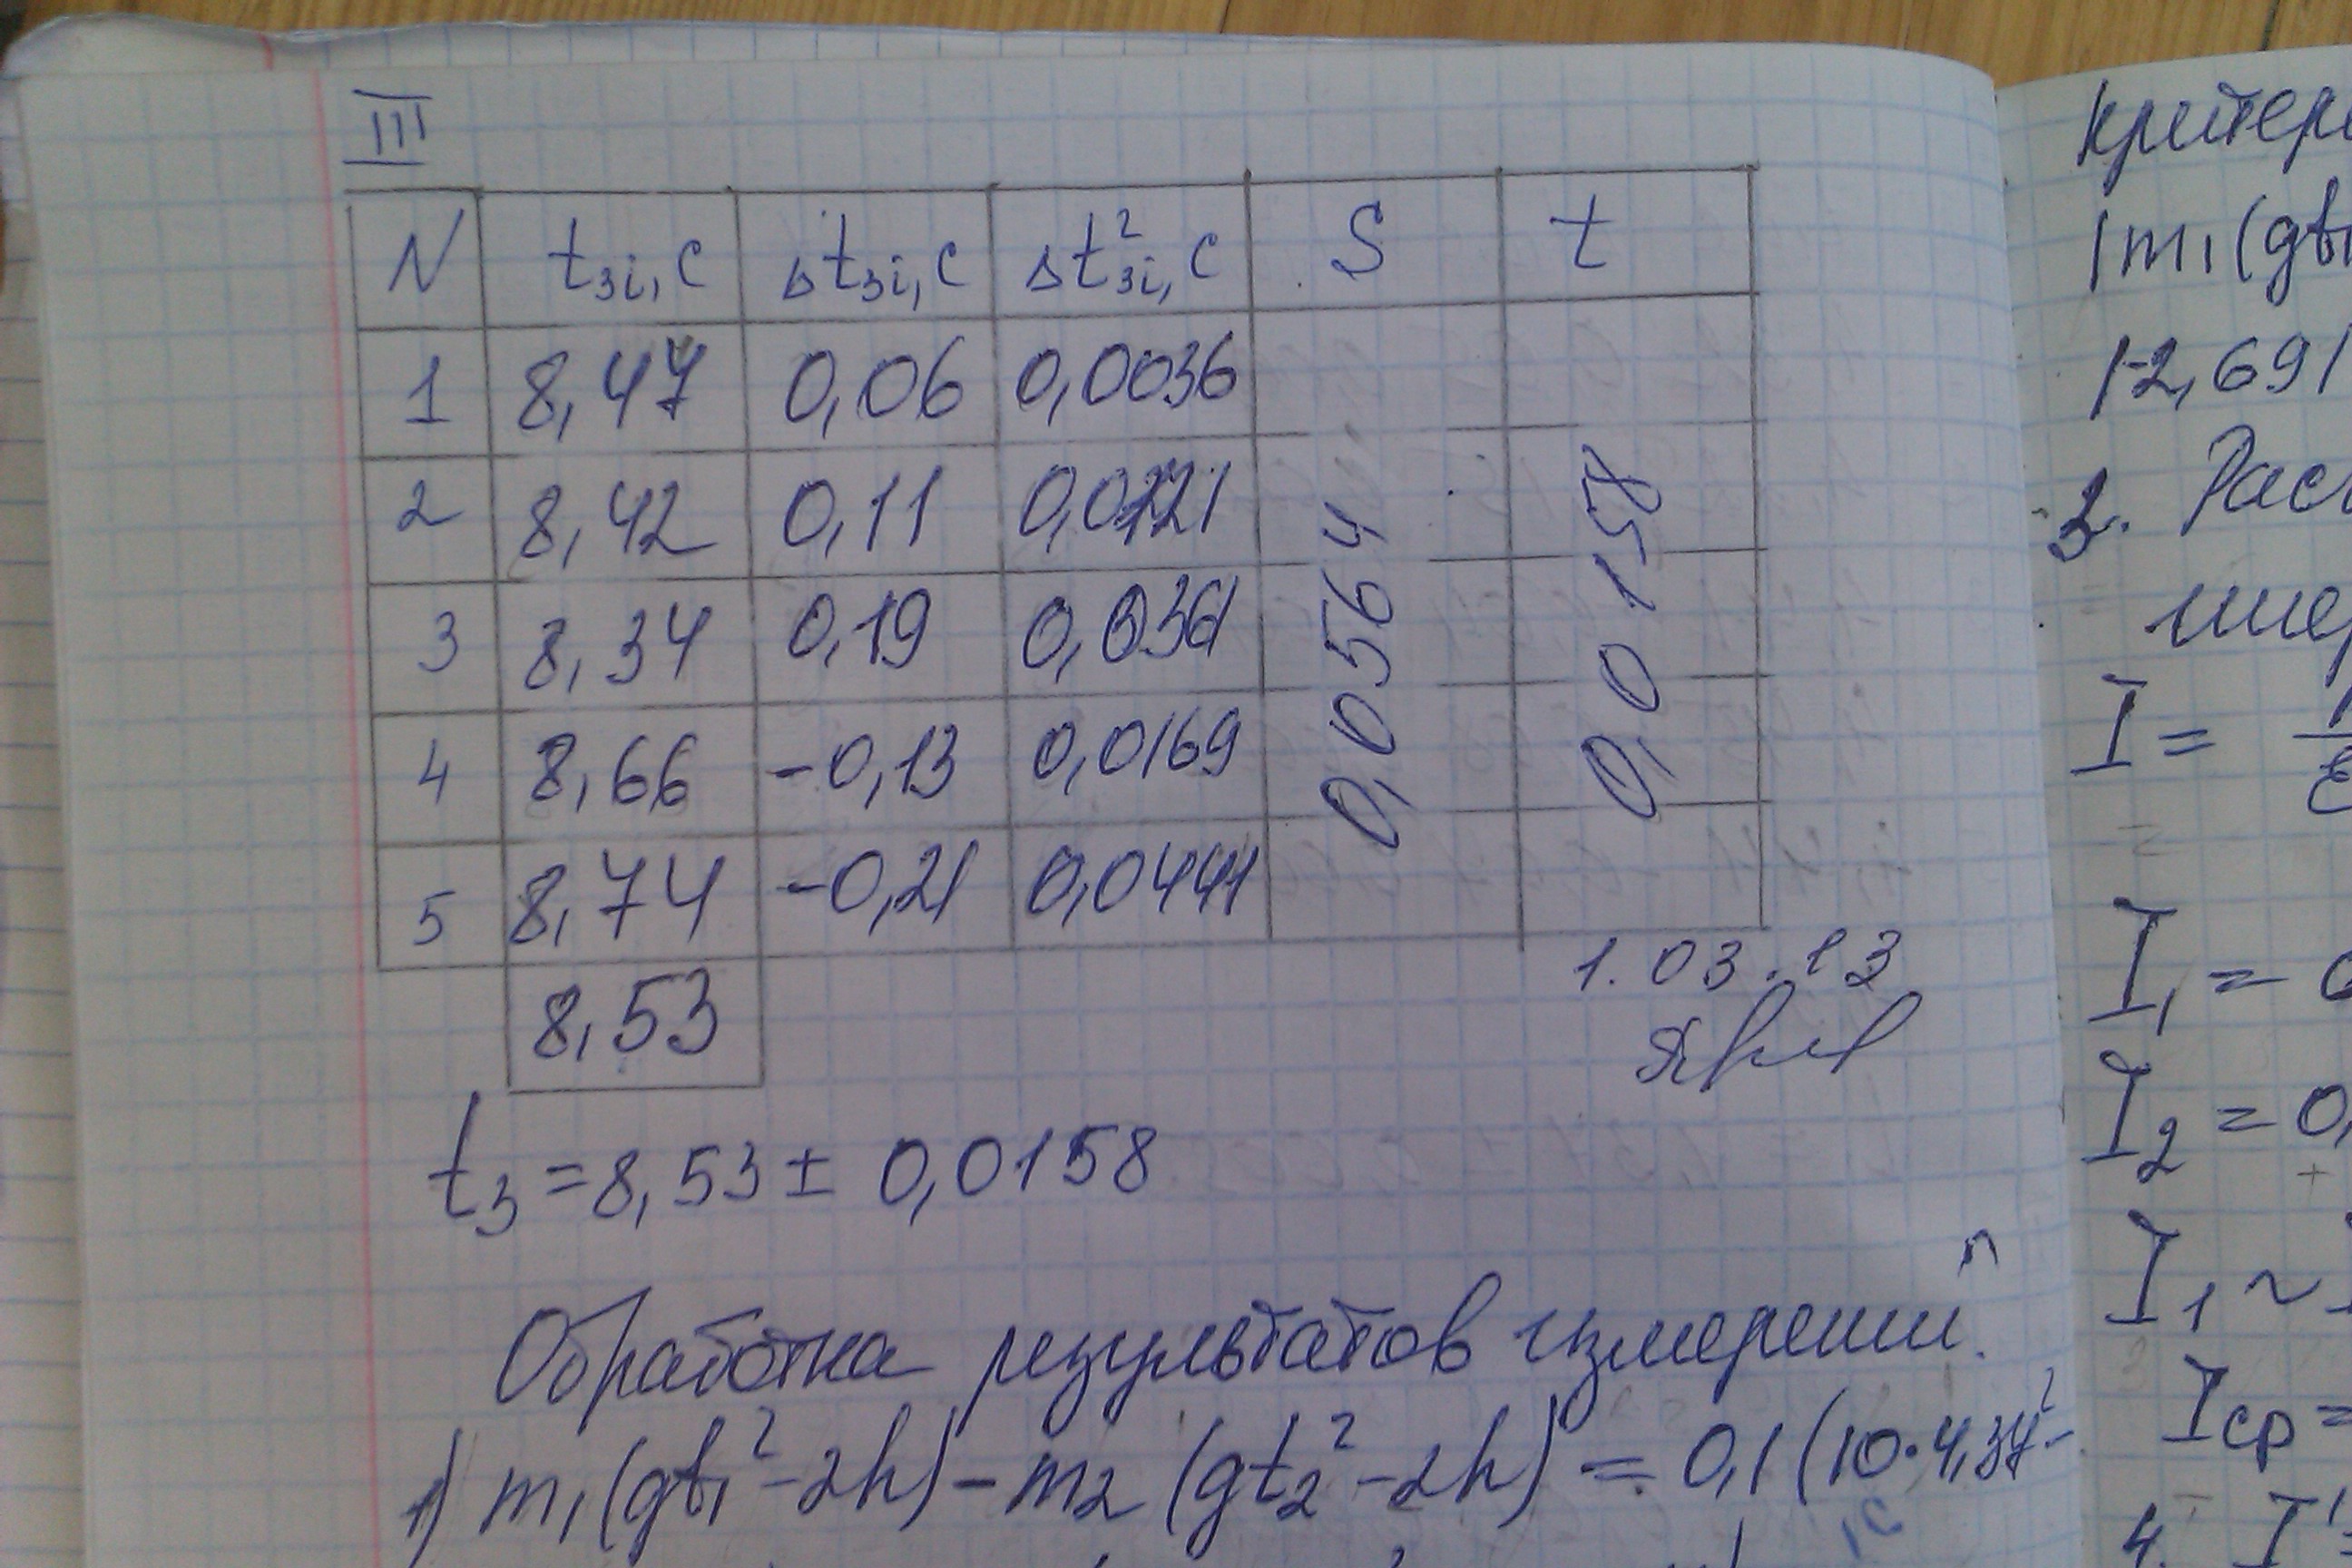 III
N t₃ᵢ, с Δt₃ᵢ, с Δt²₃ᵢ, с S t
1 8,47 0,06 0,0036
2 8,42 0,11 0,0121
3 8,34 0,19 0,0361
4 8,66 -0,13 0,0169
5 8,74 -0,21 0,0441
0,0564
0,0158
8,53
1.03.13
t₃ = 8,53 ± 0,0158
Обработка результатов измерений.
1) m₁(gt₁² - 2h) - m₂(gt₂² - 2h) = 0,1(10·4,37² -
Крите
|m₁(gt₁
|-2,69|
2. Рас
I =
I₁ =
I₂ = 0,
I₁ ~
Iср =
4.